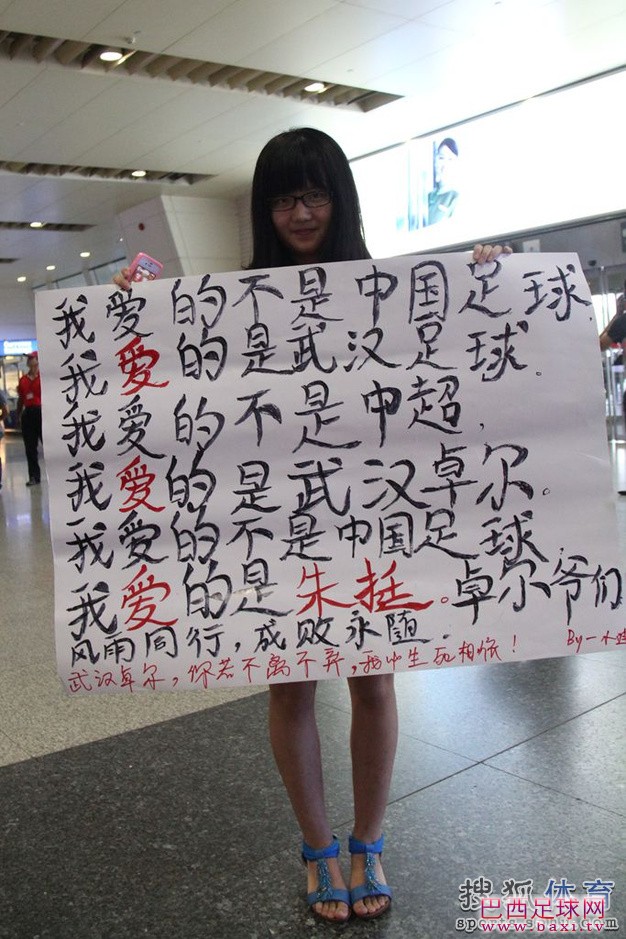 我爱的不是中国足球,
我爱的是武汉足球.
我爱的不是中超,
我爱的是武汉卓尔。
我爱的不是中国足球,
我爱的是朱挺。卓尔爷们
风雨同行,成败永随.
武汉卓尔,你若不离不弃,我必生死相依!
By一木
搜狐体育
sports.sohu.com
巴西足球网
www.baxi.tv